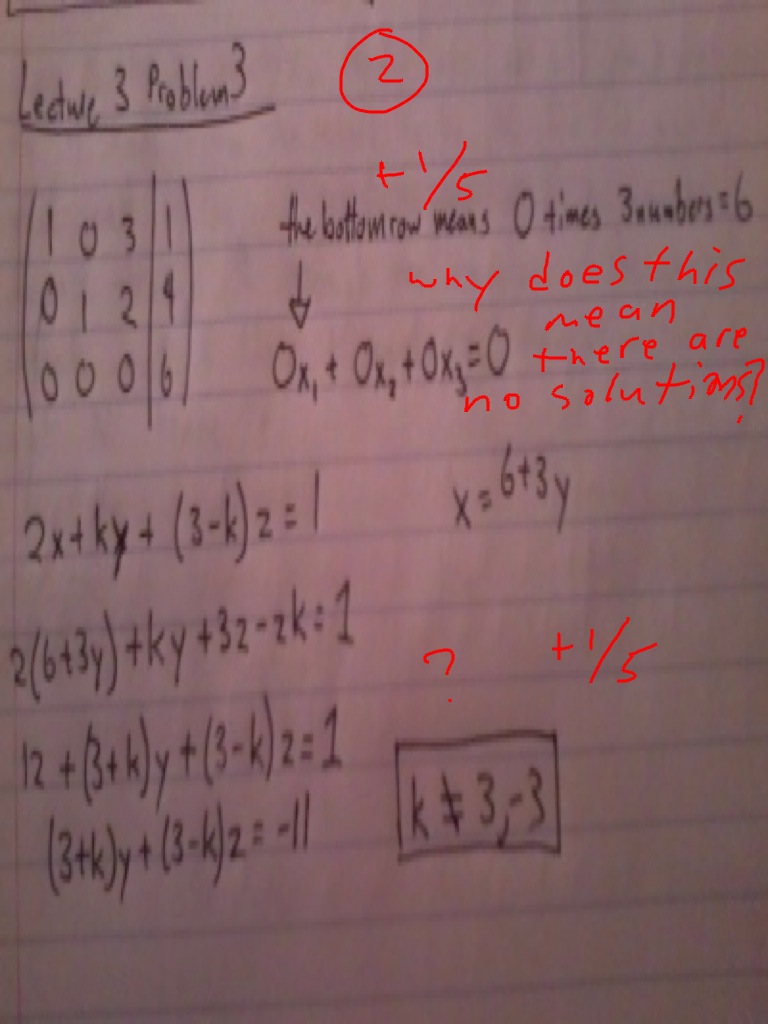 Lecture 3 Problem 3
2
+1/5
1 0 3 | 1
0 1 2 | 4
0 0 0 | 6
the bottom row means 0 times 3 numbers = 6
why does this
mean
there are
no solutions?
0x₁ + 0x₂ + 0x₃ = 0
2x + ky + (3-k)z = 1
x = 6+3y
2(6+3y) + ky + 3z - zk = 1
?
+1/5
12 + (3+k)y + (3-k)z = 1
k ≠ 3, -3
(3+k)y + (3-k)z = -11